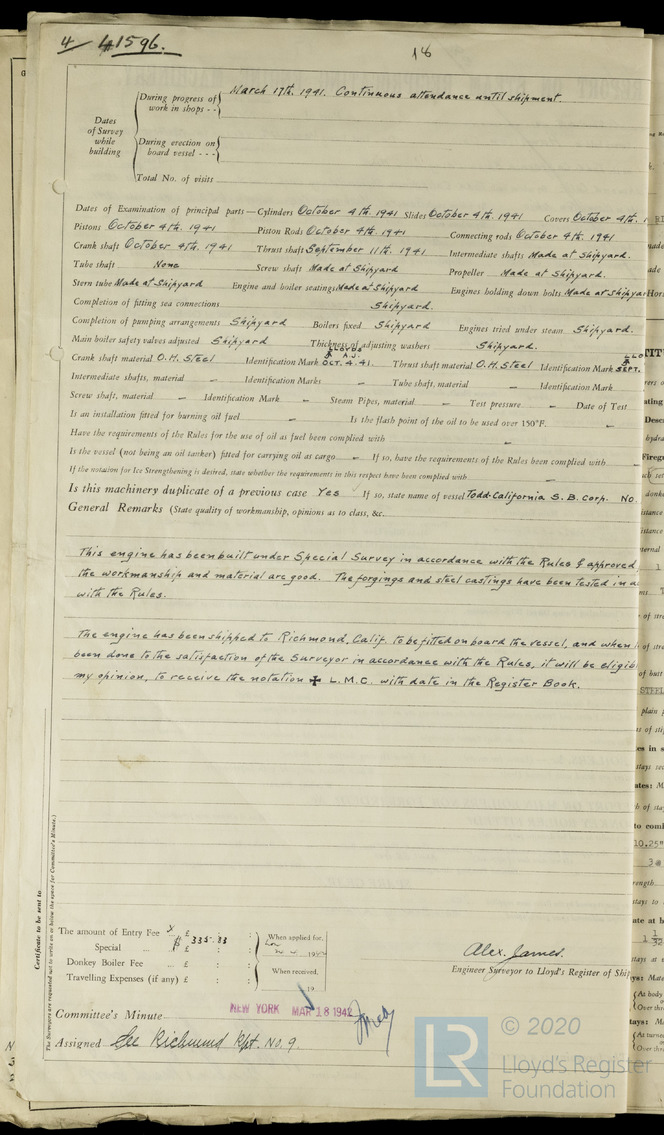 4 1596.
18
During progress of work in shops - - March 17th. 1941. Continuous attendance until shipment.
Dates of Survey while building
During erection on board vessel - - -
Total No. of visits
Dates of Examination of principal parts—Cylinders October 4th. 1941 Slides October 4th. 1941 Covers October 4th. 1
Pistons October 4th. 1941 Piston Rods October 4th. 1941 Connecting rods October 4th. 1941
Crank shaft October 4th. 1941 Thrust shaft September 11th. 1941 Intermediate shafts Made at Shipyard.
Tube shaft None Screw shaft Made at Shipyard Propeller Made at Shipyard.
Stern tube Made at Shipyard Engine and boiler seatings Made at Shipyard Engines holding down bolts Made at Shipyar
Completion of fitting sea connections Shipyard.
Completion of pumping arrangements Shipyard Boilers fixed Shipyard Engines tried under steam Shipyard.
Main boiler safety valves adjusted Shipyard Thickness of adjusting washers Shipyard.
Crank shaft material O.H. Steel Identification Mark LLOYDS A.J. OCT. 4. 41. Thrust shaft material O.H. Steel Identification Mark LLO SEPT.
Intermediate shafts, material – Identification Marks – Tube shaft, material – Identification Mark
Screw shaft, material – Identification Mark – Steam Pipes, material – Test pressure – Date of Test
Is an installation fitted for burning oil fuel – Is the flash point of the oil to be used over 150°F. –
Have the requirements of the Rules for the use of oil as fuel been complied with –
Is the vessel (not being an oil tanker) fitted for carrying oil as cargo – If so, have the requirements of the Rules been complied with –
If the notation for Ice Strengthening is desired, state whether the requirements in this respect have been complied with –
Is this machinery duplicate of a previous case Yes If so, state name of vessel Todd-California S. B. Corp. No.
General Remarks (State quality of workmanship, opinions as to class, &c.
This engine has been built under Special Survey in accordance with the Rules & approved
the workmanship and material are good. The forgings and steel castings have been tested in a
with the Rules.
The engine has been shipped to Richmond, Calif. to be fitted on board the vessel, and when
been done to the satisfaction of the Surveyor in accordance with the Rules, it will be eligib
my opinion, to receive the notation ✠ L.M.C. with date in the Register Book.
Certificate to be sent to
(The Surveyors are requested not to write on or below the space for Committee's Minute.)
The amount of Entry Fee £ : :
Special $ 335.83 £ : :
Donkey Boiler Fee £ : :
Travelling Expenses (if any) £ : :
When applied for,
19
When received,
19
Alex. James.
Engineer Surveyor to Lloyd's Register of Ship
Committee's Minute NEW YORK MAR 18 1942
Assigned See Richmond Rpt. No. 9.
LR
© 2020
Lloyd's Register
Foundation